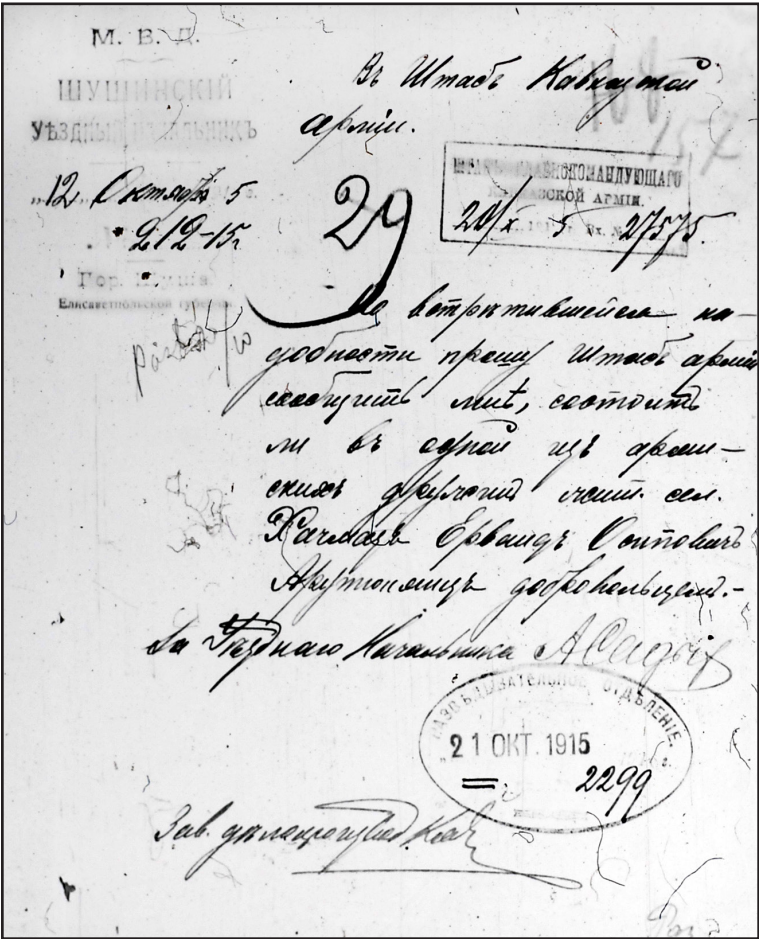 М. В. Д.
ШУШИНСКІЙ
УѢЗДНЫЙ НАЧАЛЬНИКЪ
„12 Октября 5
212-15 г.
Гор. Шуша.
Елисаветпольской губерніи.
Въ Штабъ Кавказской
арміи.
157
29
ШТАБЪ ГЛАВНОКОМАНДУЮЩАГО
КАВКАЗСКОЙ АРМІИ.
20/X 5 Вх. № 27575.
По встрѣтившейся на-
добности прошу Штабъ арміи
сообщить мнѣ, состоитъ
ли въ одной изъ армян-
скихъ дружинъ жит. сел.
Хачмазъ Ервандъ Осиповичъ
Арутюнянцъ добровольцемъ.-
За Уѣзднаго Начальника
РАЗВѢДЫВАТЕЛЬНОЕ ОТДѢЛЕНІЕ.
21 ОКТ. 1915
2299
Зав. дѣлопроизвод